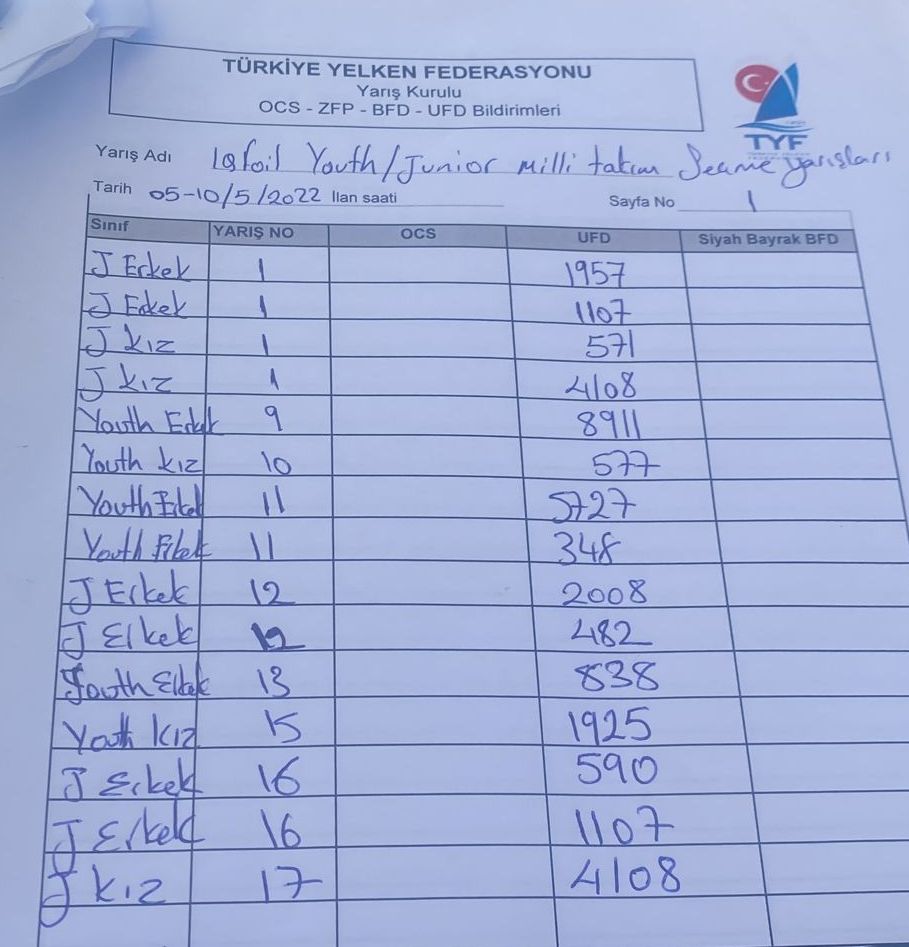 TÜRKİYE YELKEN FEDERASYONU
Yarış Kurulu
OCS - ZFP - BFD - UFD Bildirimleri
TYF
Yarış Adı Iqfoil Youth/Junior Milli takım Seçme yarışları
Tarih 05-10/5/2022 Ilan saati
Sayfa No 1
Sınıf YARIŞ NO OCS UFD Siyah Bayrak BFD
J Erkek 1 1957
J Erkek 1 1107
J kız 1 571
J kız 1 4108
Youth Erkek 9 8911
Youth kız 10 577
Youth Erkek 11 5727
Youth Erkek 11 348
J Erkek 12 2008
J Erkek 12 482
Youth Erkek 13 838
Youth Kız 15 1925
J Erkek 16 590
J Erkek 16 1107
J kız 17 4108